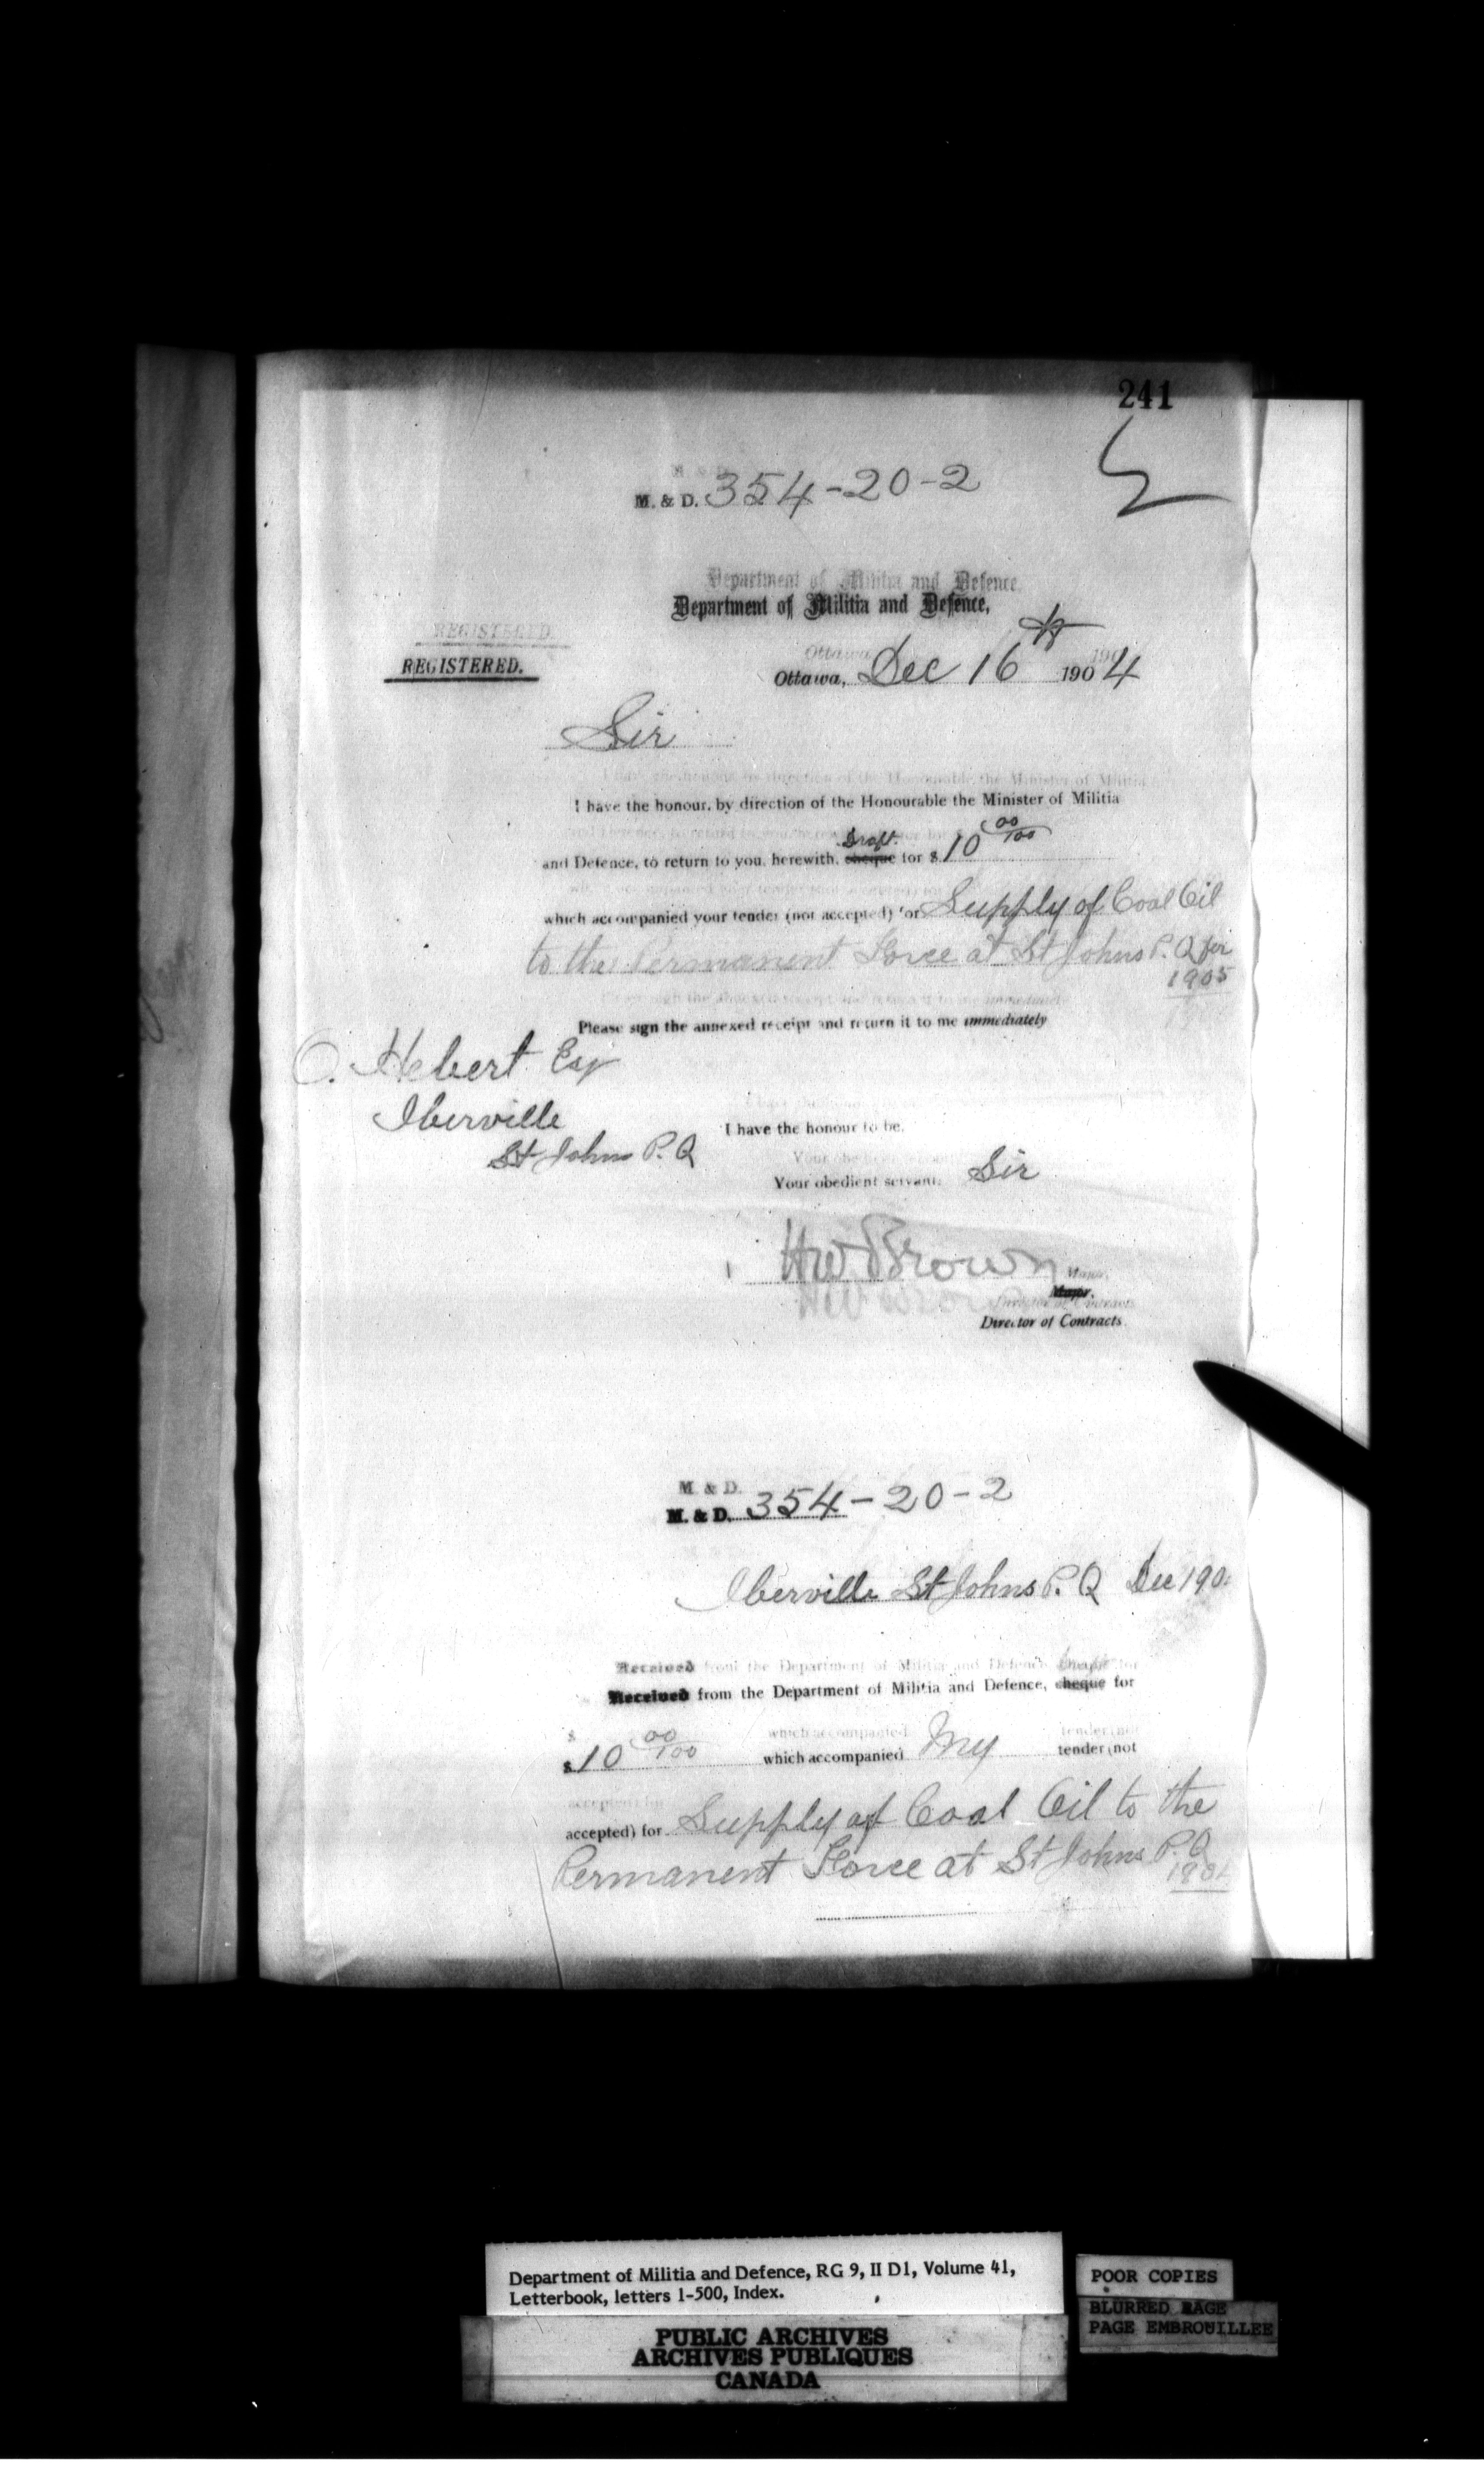 241
M. & D. 354-20-2
Department of Militia and Defence,
REGISTERED.
Ottawa, Dec 16th 1904
Sir
I have the honour, by direction of the Honourable the Minister of Militia
Draft.
and Defence, to return to you, herewith, cheque for $ 10 00/100
which accompanied your tender (not accepted) for Supply of Coal Oil
to the Permanent Force at St Johns P.Q for
1905
Please sign the annexed receipt and return it to me immediately
O. Hebert Esq
Iberville
St Johns P.Q
I have the honour to be,
Sir
Your obedient servant,
HW Brown
Major.
Director of Contracts
M. & D. 354-20-2
Iberville St Johns P.Q Dec 190
Received from the Department of Militia and Defence, cheque for
$ 10 00/100 which accompanied My tender (not
accepted) for Supply of Coal Oil to the
Permanent Force at St Johns P.Q
Department of Militia and Defence, RG 9, II D1, Volume 41,
Letterbook, letters 1-500, Index.
PUBLIC ARCHIVES
ARCHIVES PUBLIQUES
CANADA
POOR COPIES
BLURRED PAGE
PAGE EMBROUILLEE